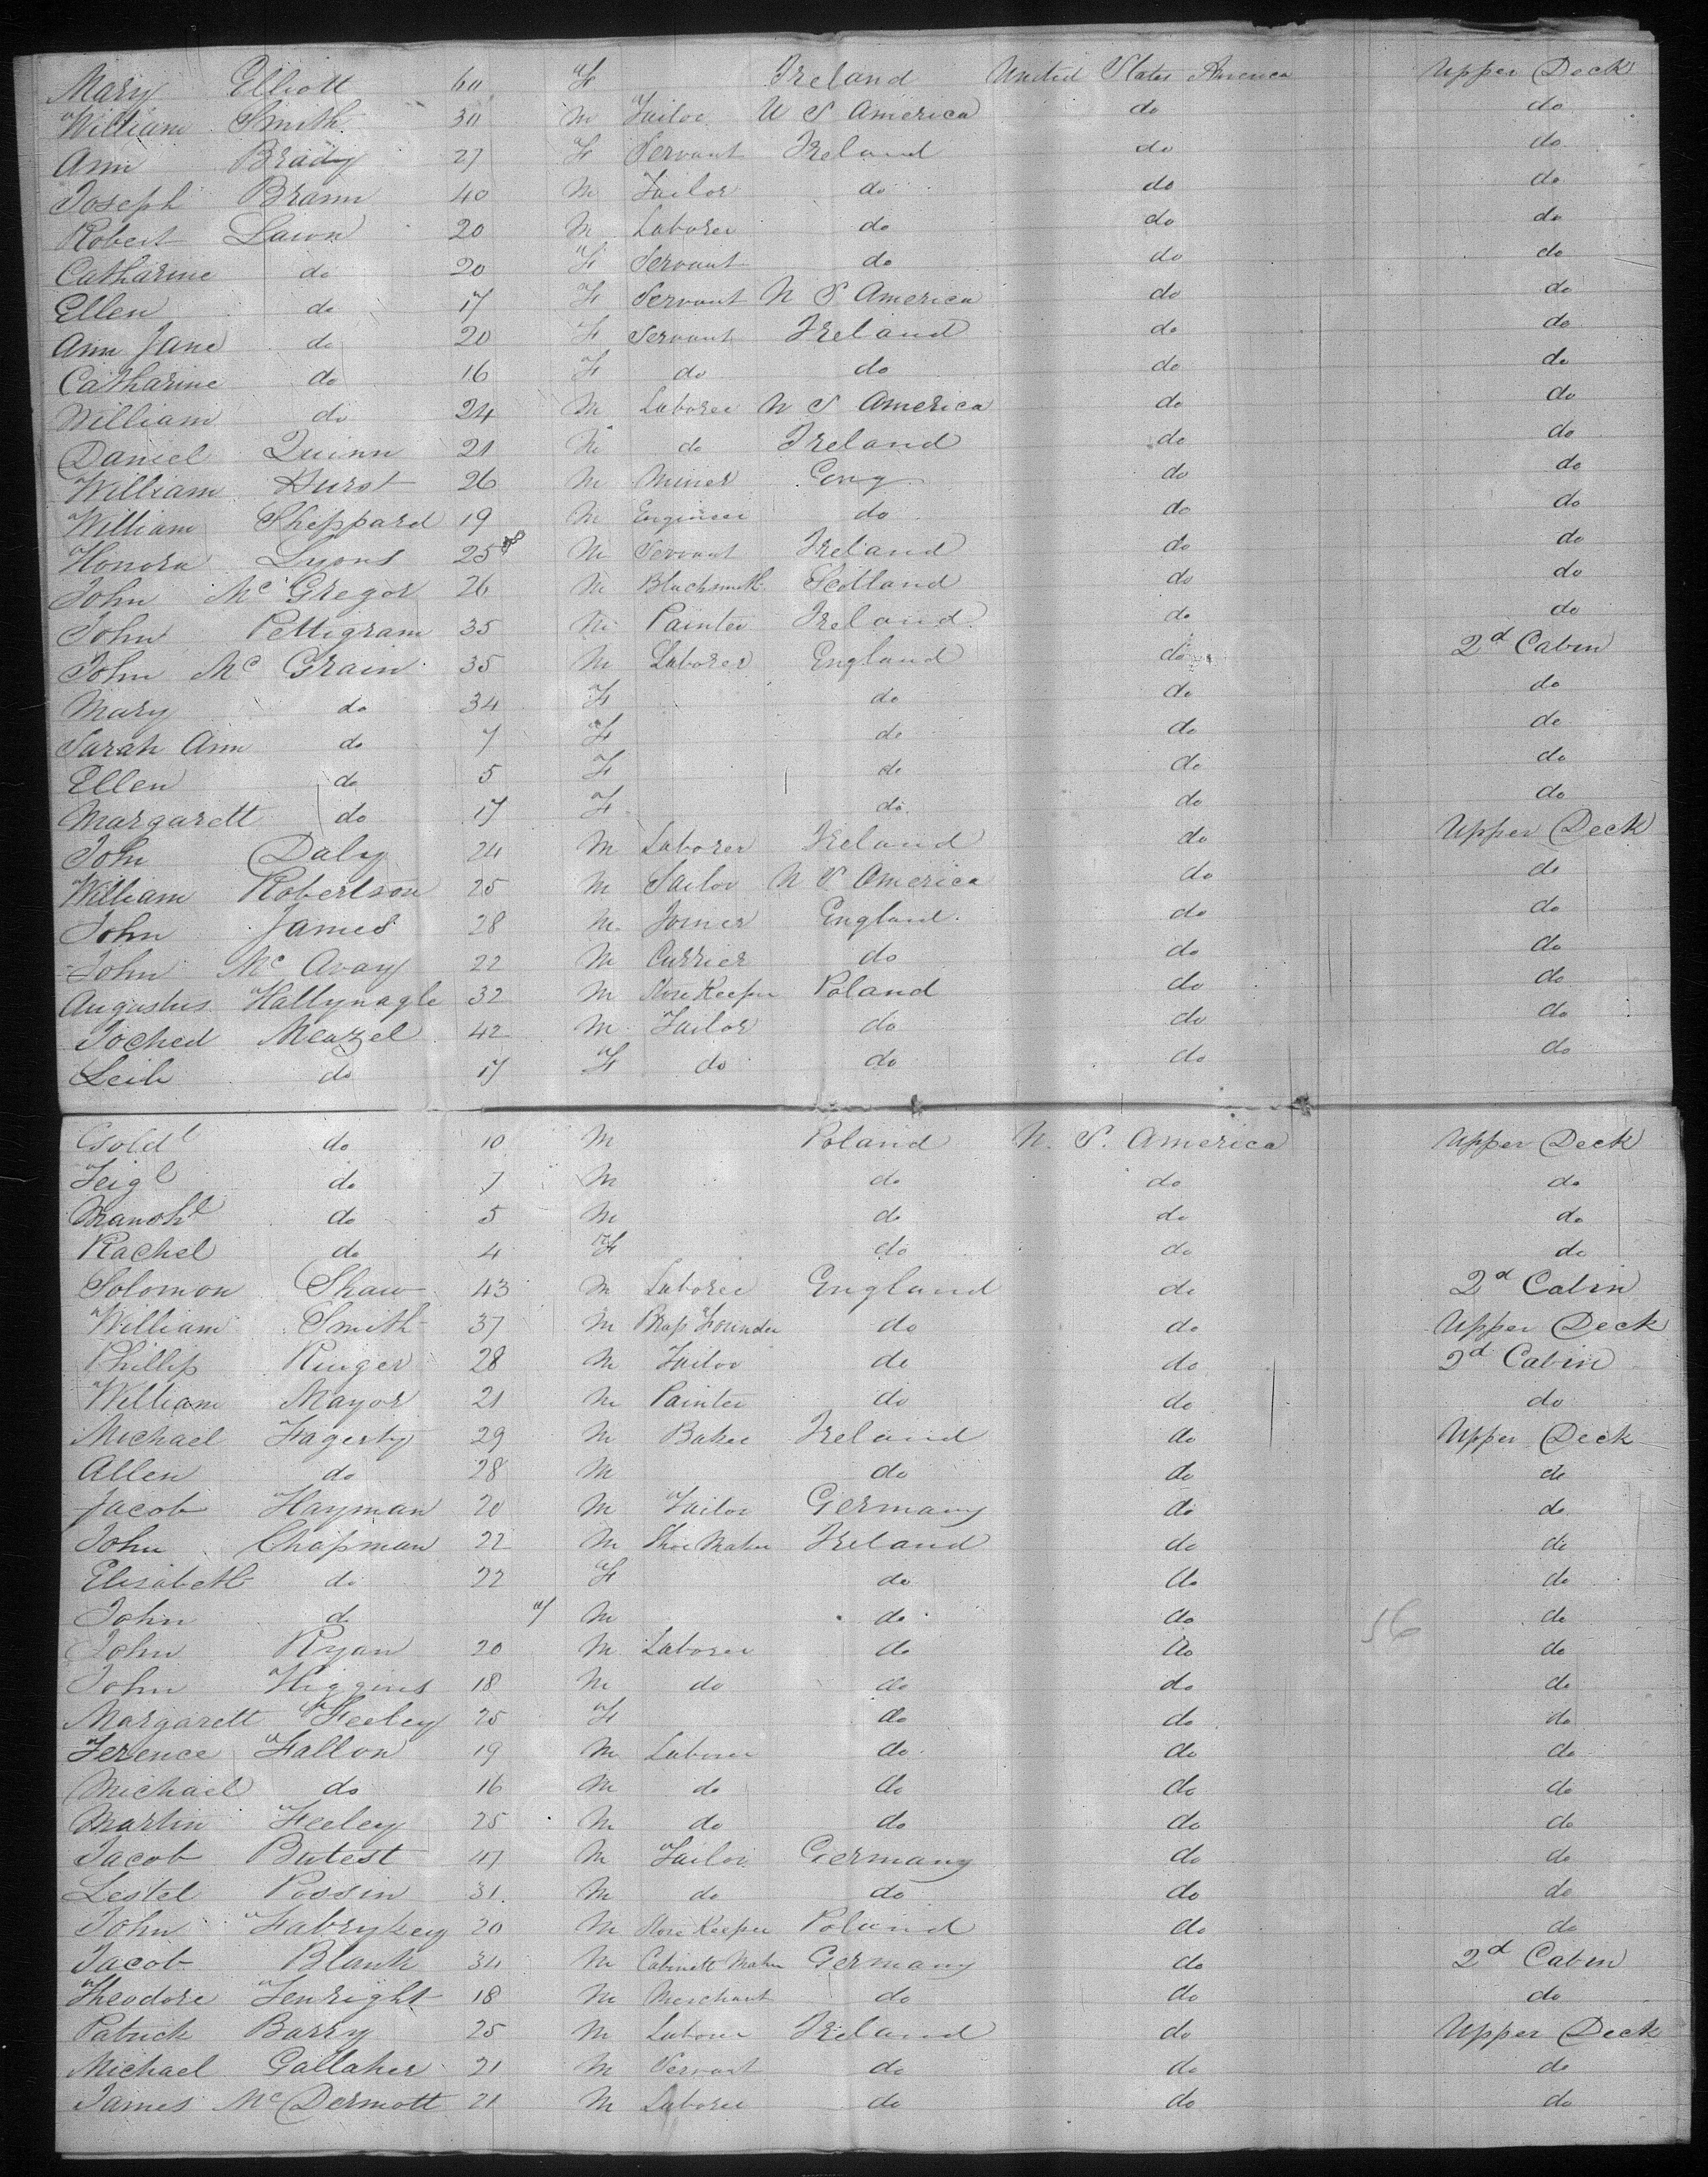 Mary Elliott 60 F Ireland United States America Upper Deck
William Smith 30 M Tailor U S America do do
Ann Brady 27 F Servant Ireland do do
Joseph Brann 40 M Tailor do do do
Robert 20 M Laborer do do do
Catharine do 20 F Servant do do do
Ellen do 17 F Servant U S America do do
Ann Jane do 20 F Servant Ireland do do
Catharine do 16 F do do do do
William do 24 M Laborer U S America do do
Daniel Quinn 21 M do Ireland do do
William Hurst 26 M Miner Eng do do
William Sheppard 19 M Engineer do do do
Honora Lyons 25 M Servant Ireland do do
John Mc Gregor 26 M Blacksmith Scotland do do
John Pettigram 35 M Painter Ireland do do
John Mc Grain 35 M Laborer England do 2d Cabin
Mary do 34 F do do do
Sarah Ann do 7 F do do do
Ellen do 5 F do do do
Margarett do 17 F do do do
John Daly 24 M Laborer Ireland do Upper Deck
William Robertson 25 M Sailor U S America do do
John James 28 M Joiner England do do
John Mc Avay 22 M Currier do do do
Augustus Hallynagle 32 M Store Keeper Poland do do
Joched Menzel 42 M Tailor do do do
Leib do 17 F do do do do
Gold l do 10 M Poland U. S. America Upper Deck
Feig l do 7 M do do do
do 5 M do do do
Rachel do 4 F do do do
Solomon Shaw 43 M Laborer England do 2d Cabin
William Smith 37 M Brass Founder do do Upper Deck
Phillip Ruger 28 M Tailor do do 2d Cabin
William Mayor 21 M Painter do do do
Michael Fagerty 29 M Baker Ireland do Upper Deck
Allen do 28 M do do do
Jacob Hayman 20 M Tailor Germany do do
John Chapman 22 M Shoe Maker Ireland do do
Elisabeth do 22 F do do do
John do M do do do
John Ryan 20 M Laborer do do do
John Higgins 18 M do do do do
Margarett Feeley 25 F do do do
Terence Fallon 19 M Laborer do do do
Michael do 16 M do do do do
Martin Feeley 25 M do do do do
Jacob Butest 47 M Tailor Germany do do
Lestel Possin 31 M do do do do
John 20 M Store Keeper Poland do do
Jacob Blank 34 M Cabinett Maker Germany do 2d Cabin
Theodore Fenright 18 M Merchant do do do
Patrick Barry 25 M Laborer Ireland do Upper Deck
Michael Gallaher 21 M Servant do do do
James Mc Dermott 21 M Laborer do do do
56